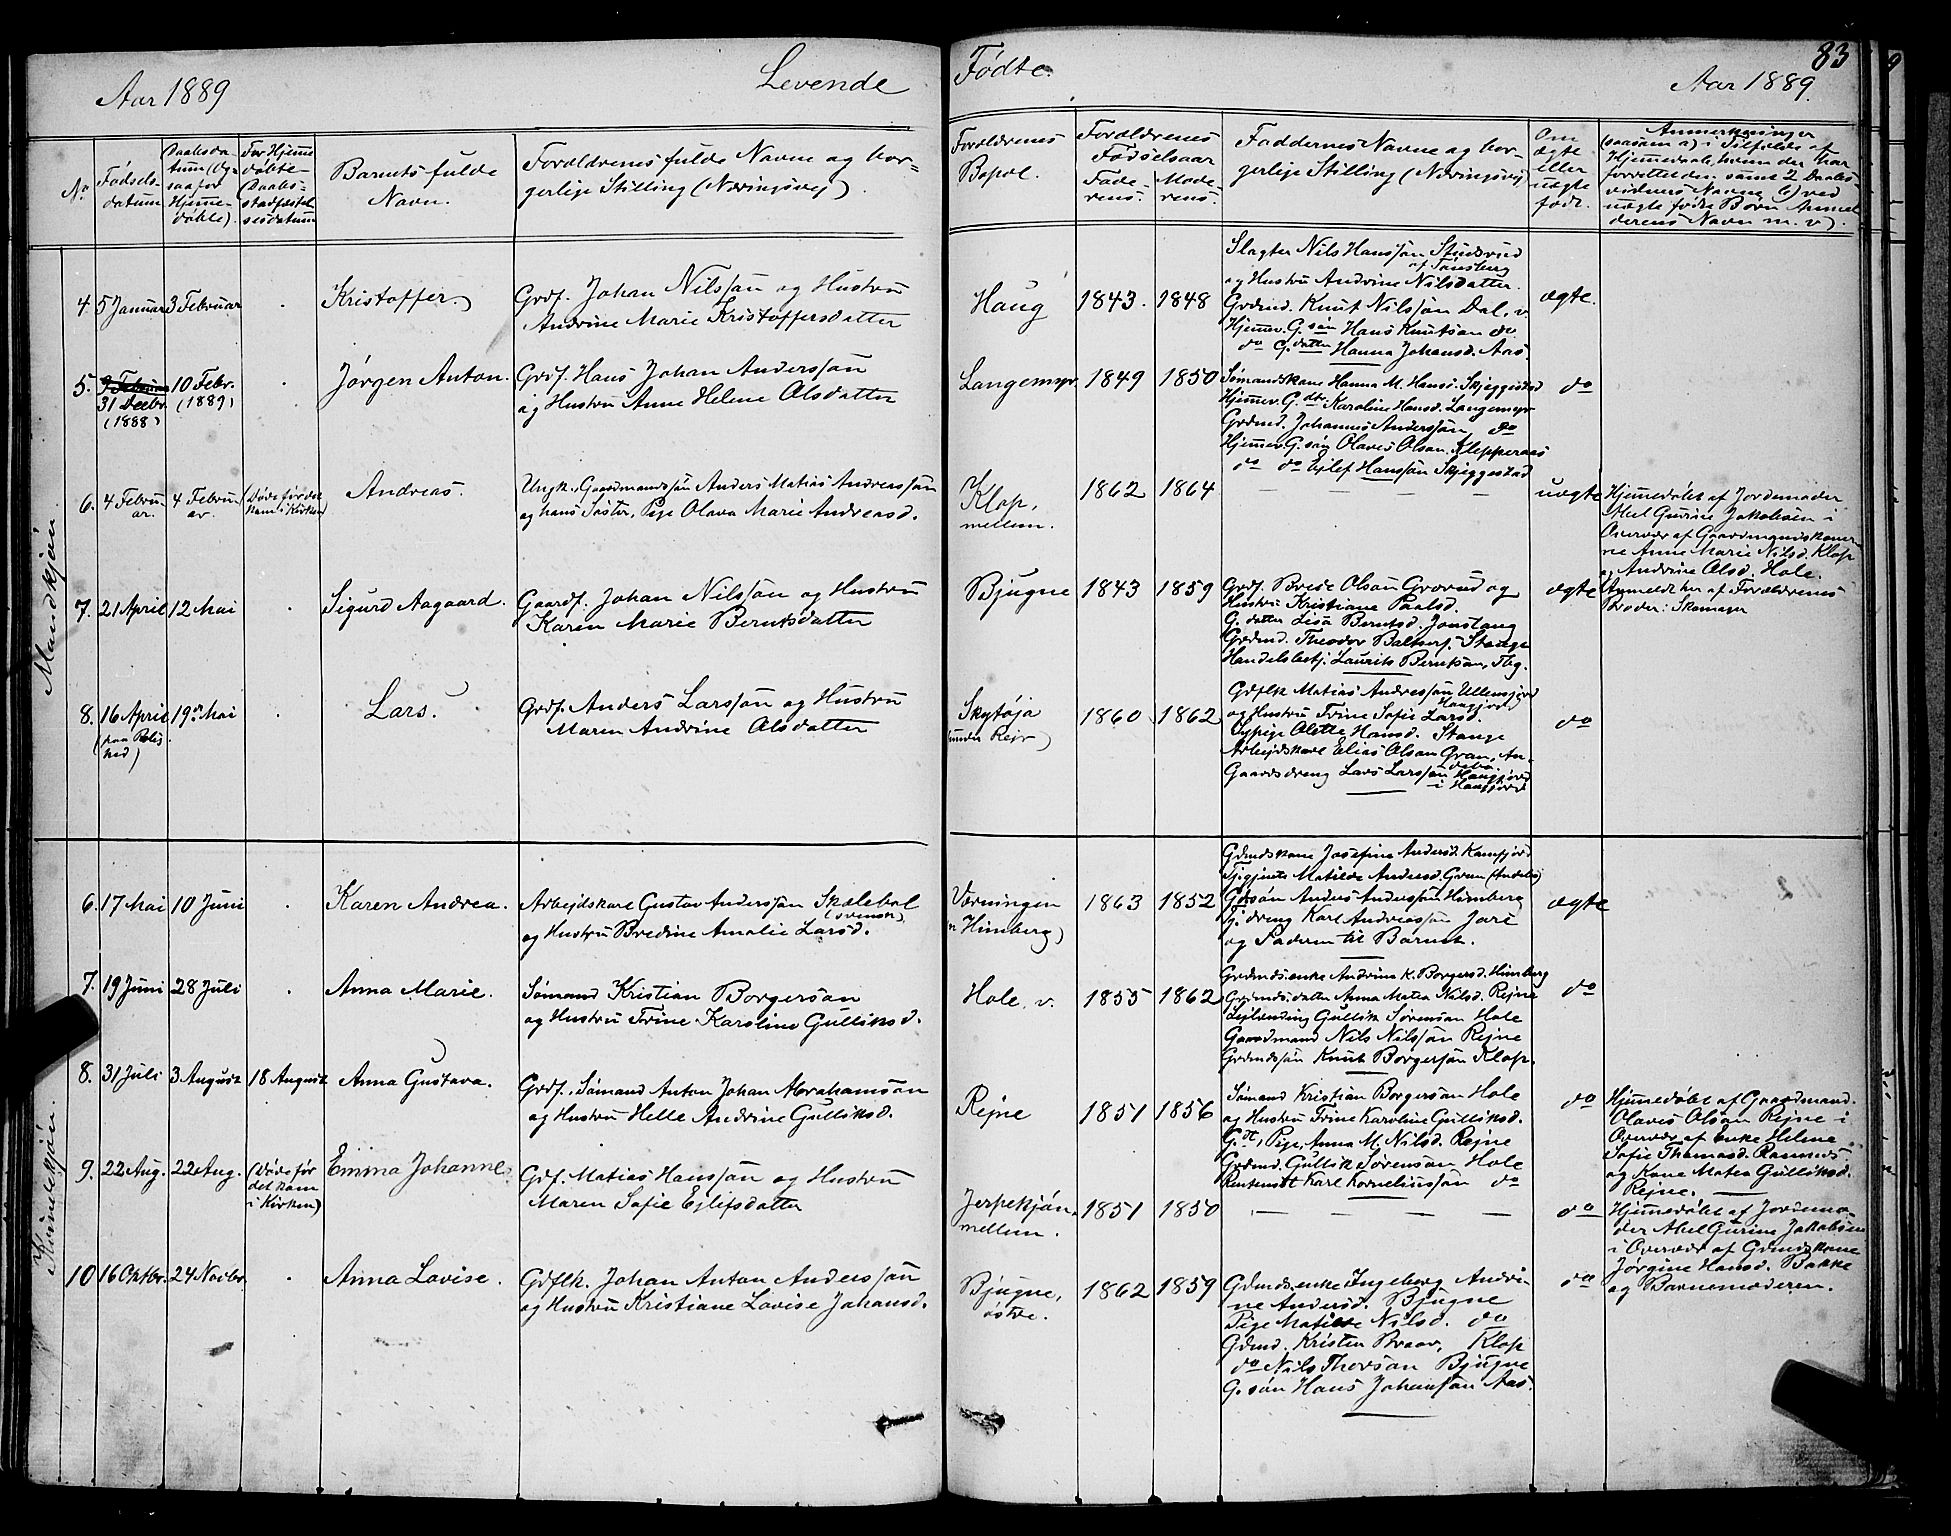 Aar 1889
Levende
Fødte.
83
Aar 1889.
No
Fødsels-
datum
Daabsda-
tum (Og-
saa for
Hjemme-
døbte).
For Hjemme
døbte
Daabs-
stadfæstel
sesdatum
Barnets fulde
Navn.
Forældrenes fulde Navne og bor-
gerlige Stilling (Næringsvej).
Forældrenes
Bopæl.
Forældrenes
Fødselsaar
Fade-
rens.
Mode-
rens.
Faddernes Navne og bor-
gerlige Stilling (Næringsvej)
Om
ægte
eller
uægte
født.
Anmerkninger
(saasom a) i Tilfælde af
Hjemmedaab, hvem der har
forrettet den, samt 2 Daabs-
vidners Navne b) ved
uægte fødte Børn Anmel
derens Navn m. v).
Mandkjøn
4. 5 Januar 3 Februar
Kristoffer.
Grdf. Johan Nilssøn og Hustru
Andrine Marie Kristoffersdatter
Haug 1843. 1848
Slagter Nils Hanssøn Studsrud
af Tønsberg
og Hustru Andrine Nilsdatter.
Grdmd. Knut Nilssøn Dal, v.
Hjemv. G. søn Hans Knutsøn do
do G. datter Hanna Johansd. Aas.
ægte.
5. 31 Decbr. (1888) 10 Febr. (1889)
Jørgen Anton.
Grdf. Hans Johan Anderssøn
og Hustru Anne Helene Olsdatter
Langemyr. 1849 1850
Sømandskone Hanna M. Hansd. Skjeggestad
Hjemv. G. dtr. Karoline Hansd. Langemyr
Grdmd. Johannes Anderssøn, do
Hjemv. G. søn Olaves Olsøn. Kleppernes
do do Ejlef Hanssøn Skjeggestad
do
6. 4 Februar. 4 Februar (Døde før det kom i Kirken)
Andreas.
Ungk. Gaardmandssøn Anders Matias Andreassøn
og hans Søster, Pige Olava Marie Andreasd.
Klop,
mellem. 1862 1864
— — — —
uægte
Hjemmedøbt af Jordemoder
Abel Gurine Jakobsen i
Overvær af Gaardmandskoner-
ne Anne Marie Nilsd. Klop
og Andrine Olsd. Hole.
Anmeldt her af Forældrenes
Broder i Skomager
7. 21 April 12 Mai
Sigurd Aagaard.
Gaardf. Johan Nilssøn og Hustru
Karen Marie Berntsdatter
Bjugne 1843 1859
Grdf. Brede Olsøn Grorud og
Hustru Kristiane Paulsd.
G. datter Lisa Berntsd. Jonstang
Grdmd. Theodor Baltserf. Stange
Handelsbetj. Laurits Berntsøn, Tbg.
ægte
8. 16 April (paa Rolighed) 19 Mai
Lars.
Grdf. Anders Larssøn og Hustru
Maren Andrine Olsdatter
Skytøja
(under Rejr) 1860 1862
Gdflk Matias Andressøn Ullensjord
Haugjord
og Hustru Trine Sofie Larsd.
Sypige Olette Hansd. Stange
Arbejdskarl Elias Olsøn Gran, An-
debu
Gaardsdreng Lars Larssøn Haugjord
i Haugjord
do
Kvindekjøn.
6. 17 Mai 10 Juni
Karen Andrea.
Arbejdskarl Gustav Anderssøn Skålebol
(svensk)
og Hustru Bredine Amalie Larsd.
Værningen
(v Himberg) 1863 1852
Gdmdskone Josefine Andersd. Kamfjord
Tj.pige Matilde Andersd. Gran (Andebu)
Gdsøn Anders Anderssøn Himberg
Tj. dreng Karl Andreassøn Jare
og Faderen til Barnet.
ægte
7. 19 Juni 28 Juli
Anna Marie.
Sømand Kristian Borgersøn
og Hustru Trine Karoline Gulliksd.
Hole, v. 1855 1862
Grdmds. enke Andrine K. Borgersd. Himberg
Grdmds. datter Anna Matea Nilsd. Rejne
Lejlænding Gullik Sørensøn Hole
Gaardmand Nils Nilssøn Rejne
Grdmdssøn Knut Borgersøn Klop.
do
8. 31 Juli 3 August 18 August
Anna Gustava.
Grdf. Sømand Anton Johan Abrahamsøn
og Hustru Helle Andrine Gulliksd.
Rejne 1851 1856
Sømand Kristian Borgersøn Hole
og Hustru Trine Karoline Gulliksd.
G. dt, Pige Anna M. Nilsd. Rejne
Grdmd. Gullik Sørensøn Hole
Rentenist Karl Korneliussøn do
do
Hjemmedøbt af Gaardmand
Olaves Olsøn Rejne i
Overvær af Enke Helene
Sofie Thomasd. Ramnes
og Kone Matea Gulliksd.
Rejne.
9. 22 Aug. 22 Aug. (Døde før
det kom
i Kirken)
Emma Johanne
Gdf. Matias Hanssøn og Hustru
Maren Sofie Ejlifsdatter
Jerpekjøn.
mellem. 1851 1850
— — — —
do
Hjemmedøbt af Jordemo-
der Abel Gurine Jakobsen
i Overvær af Gdmdskone
Jørgine Hansd. Bakke
og Barnemoderen.
10 16 Oktbr. 24 Novbr.
Anna Lovise.
Gdflk. Johan Anton Anderssøn
og Hustru Kristiane Lovise Johansd.
Bjugne,
østre. 1862 1859
Gdmds. enke Ingeborg Andri-
ne Andersd. Bjugne
Pige Matilde Nilsd. do
Gdmd. Kristen Braar, Klop
do Nils Thorsøn Bjugne
G. søn Hans Johansøn Aas.
do